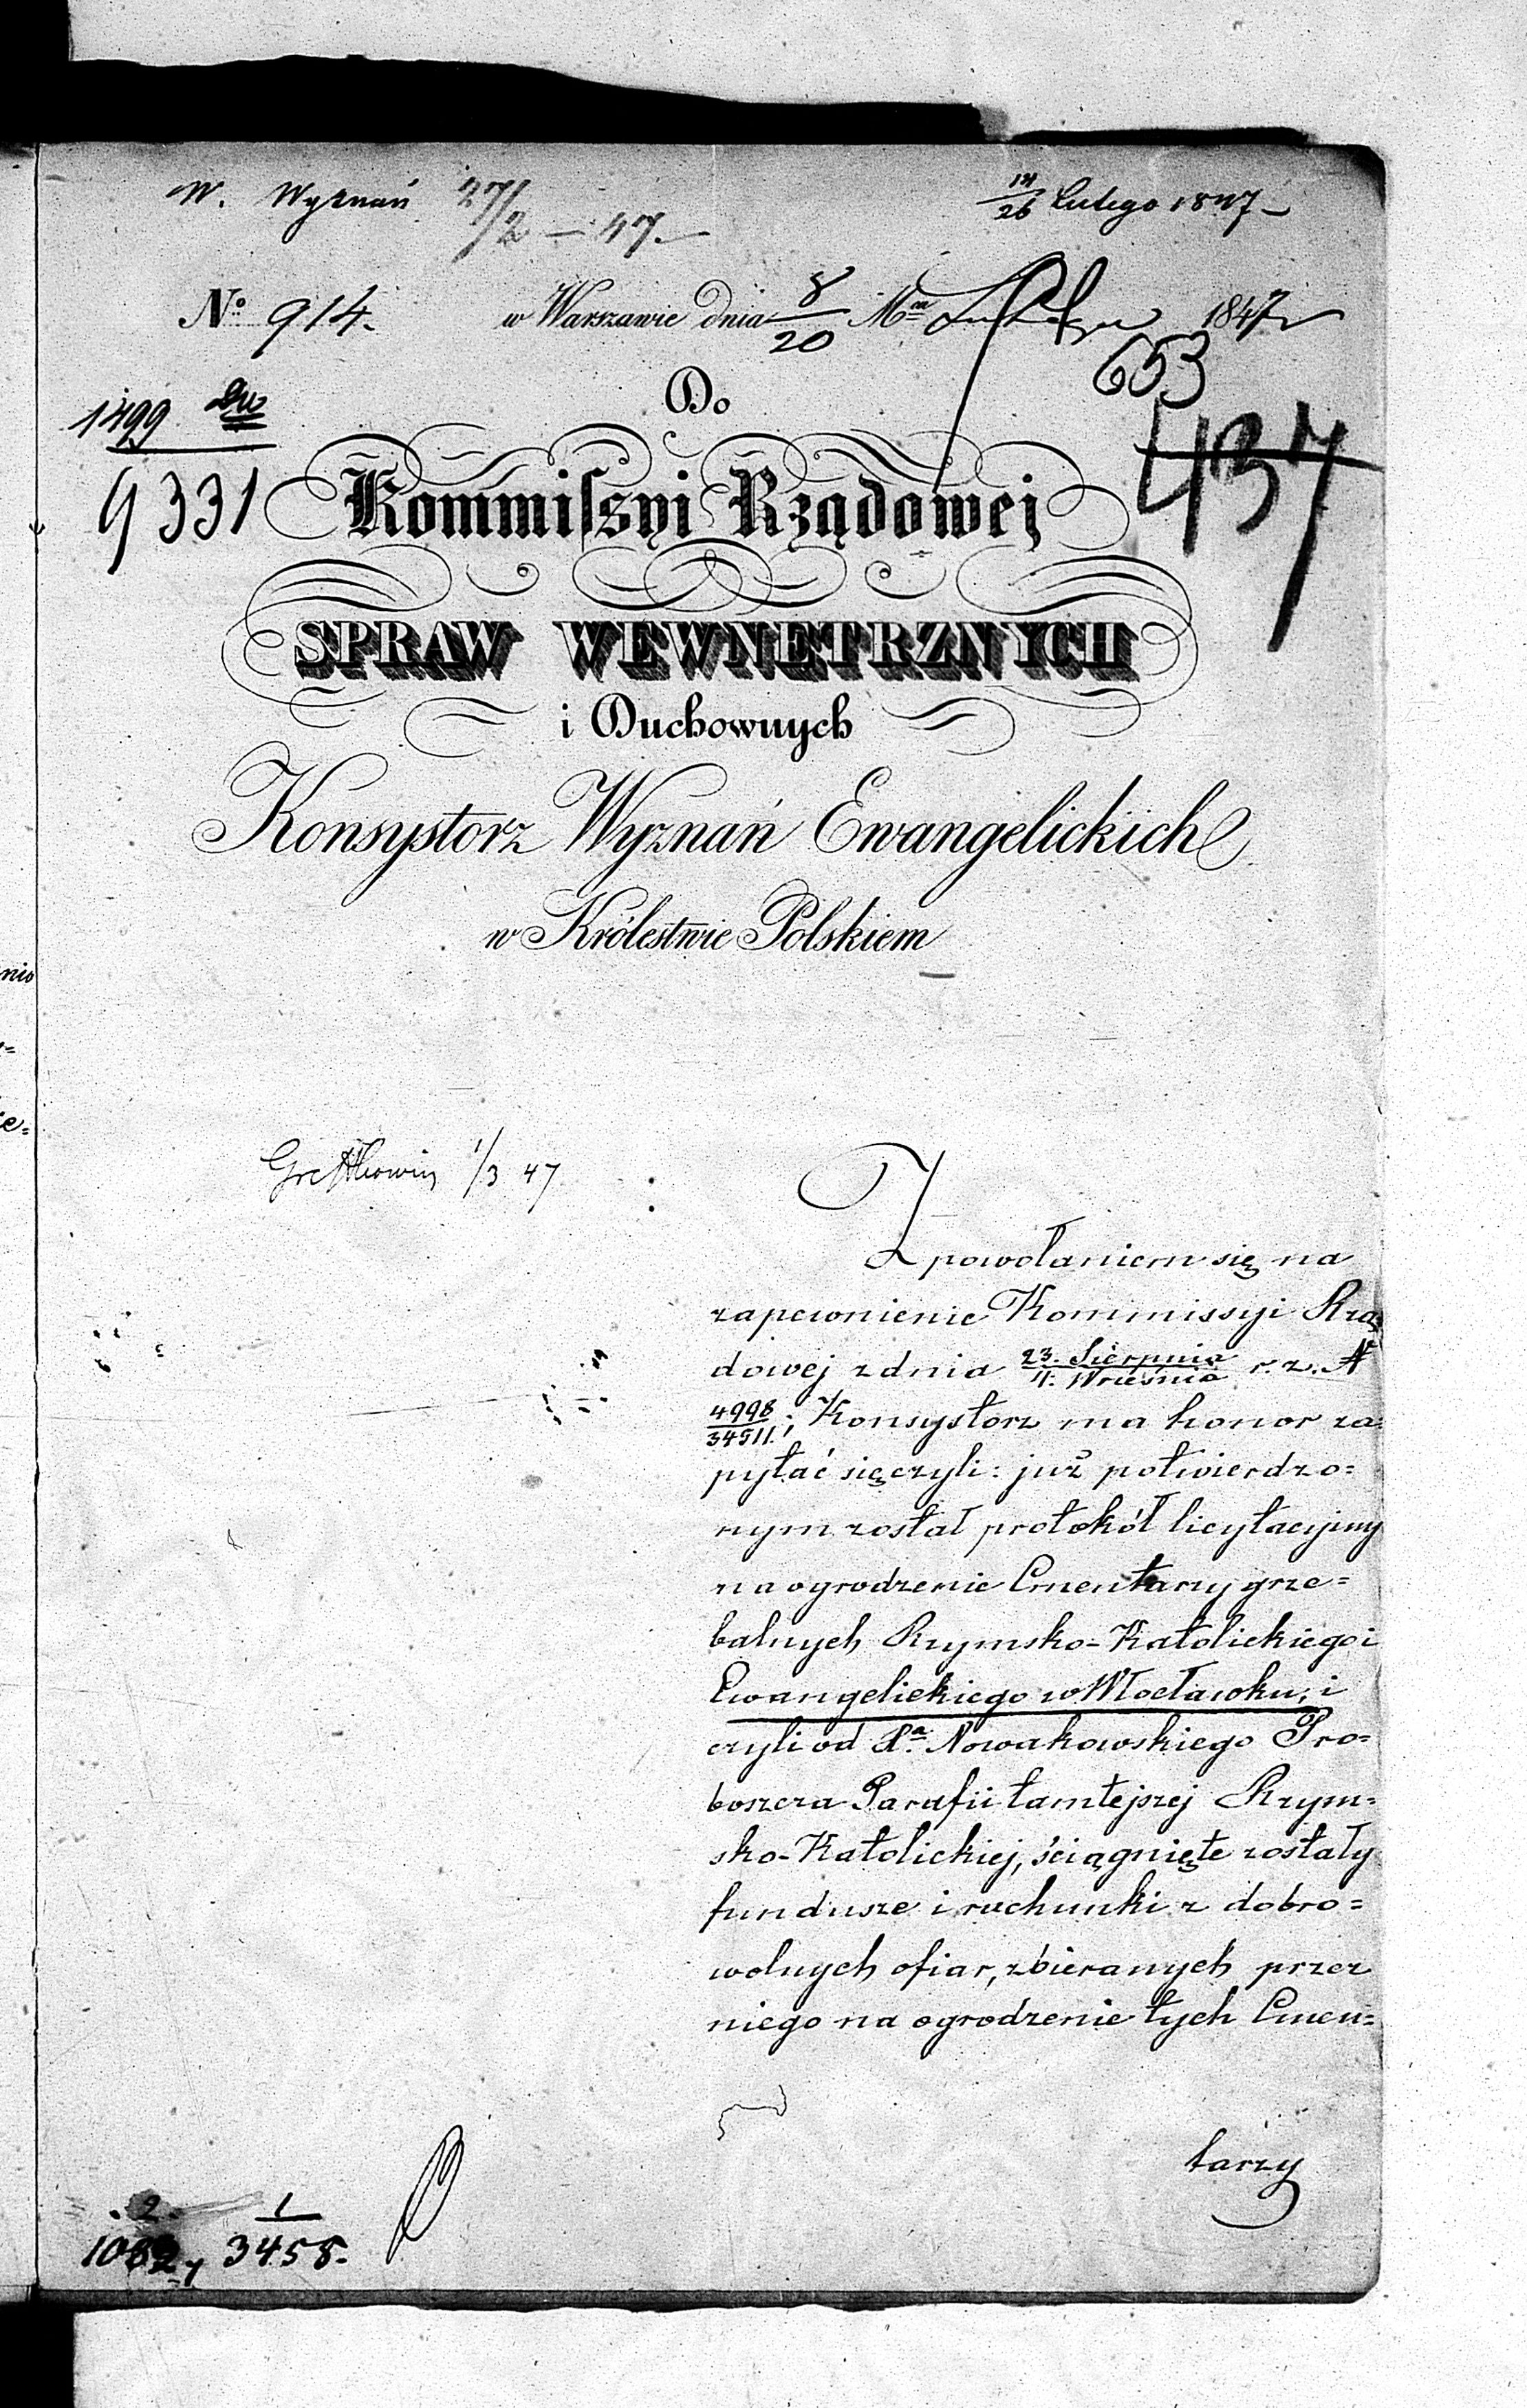 W. Wyznań 27/2 – 47.
14/26 Lutego 1847
№ 914. w Warszawie dnia 8/20 Mca Lutego 1847
653
Do
1499
9331
437
Kommissyi Rządowej
SPRAW WEWNĘTRZNYCH
i Duchownych
Konsystorz Wyznań Ewangelickich
w Królestwie Polskiem
1/3 47
Z powołaniem się na
zapewnienie Kommissyi Rzą
dowej z dnia 23. Sierpnia/11. Września r. z. N
4998/34511.; Konsystorz ma honor za=
pytać się czyli: już potwierdzo=
nym został protokół licytacyjny
na ogrodzenie Cmentarzy grze=
balnych Rzymsko-Katolickiego i
Ewangelickiego w Włocławku, i
czyli od Xa. Nowakowskiego Pro=
boszcza Parafii tamtejszej Rzym=
sko-Katolickiej, ściągnięte zostały
fundusze i rachunki z dobro=
wolnych ofiar, zbieranych przez
niego na ogrodzenie tych Cmen=
tarzy
2. 1
1062, 3458.